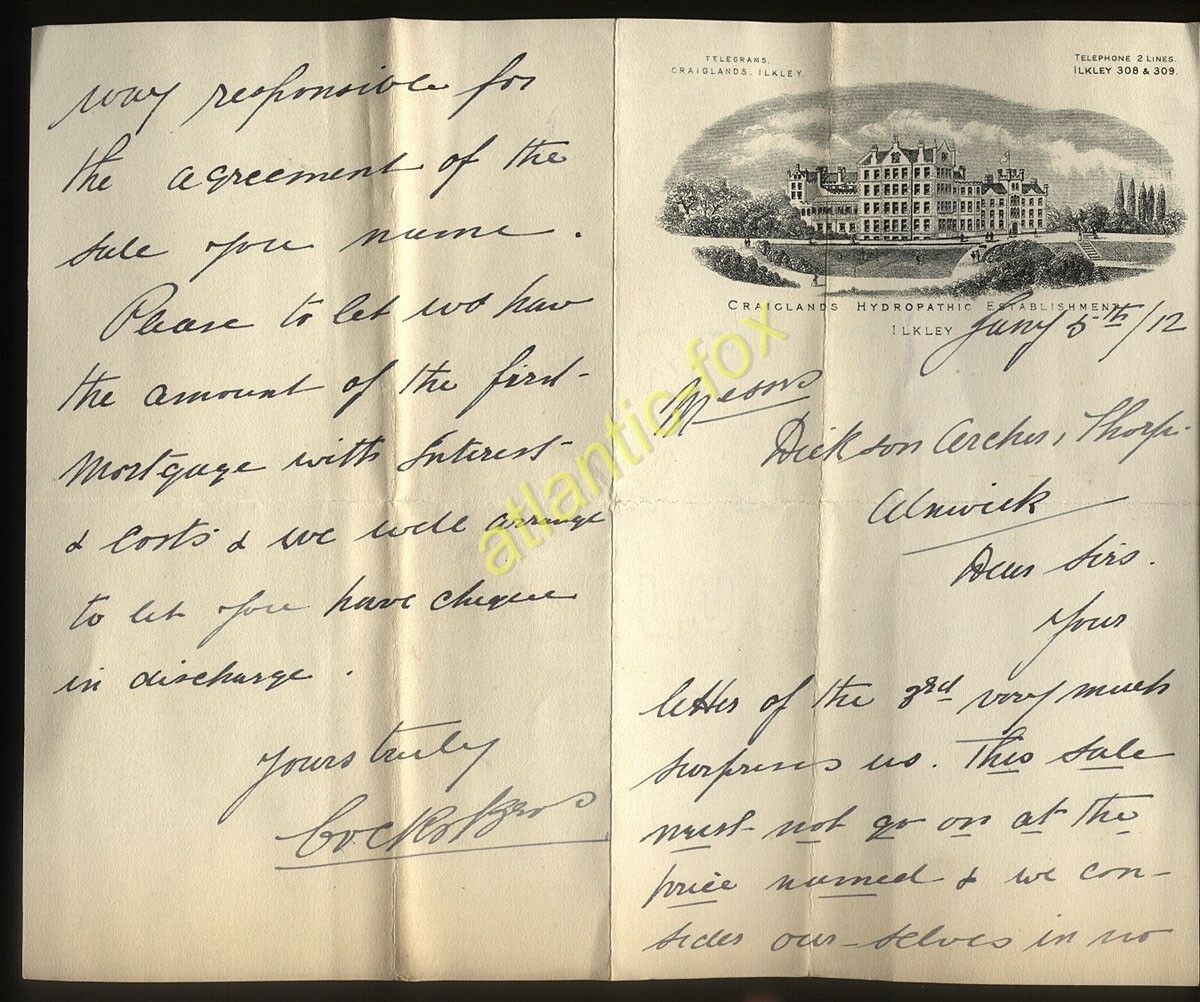 TELEGRAMS.
CRAIGLANDS. ILKLEY.
TELEPHONE 2 LINES.
ILKLEY 308 & 309.
CRAIGLANDS HYDROPATHIC ESTABLISHMENT
ILKLEY.
Jany 5th/12
Messrs
Dickson Archer, Thorp.
Alnwick
Dear Sirs.
Your
letter of the 3rd very much
surprises us. This sale
must not go on at the
price named & we con-
sider our-selves in no
way responsible for
the agreement of the
sale you name.
Please to let us have
the amount of the first
Mortgage with Interest
& Costs & we will arrange
to let you have cheque
in discharge.
Yours truly
Bros
atlantic-fox